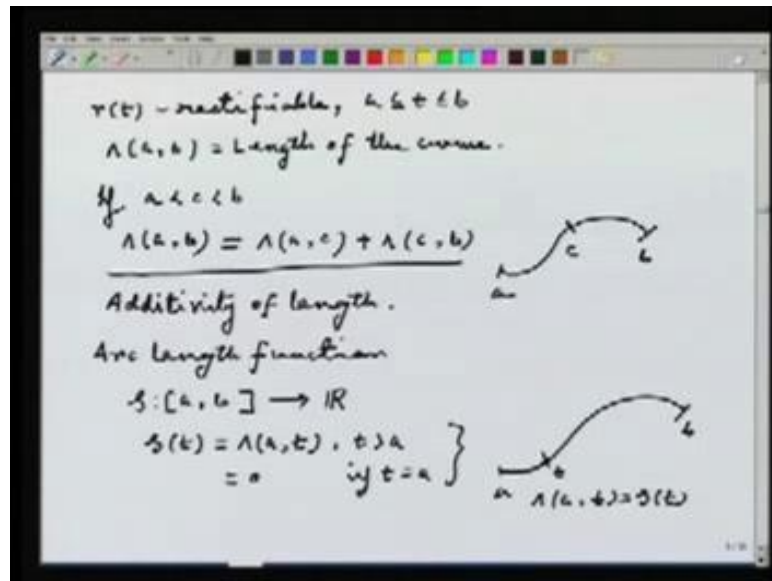 r(t) – rectifiable, a ≤ t ≤ b
Λ(a, b) = Length of the curve.
If a < c < b
Λ(a, b) = Λ(a, c) + Λ(c, b)
a
c
b
Additivity of length.
Arc Length function
s : [a, b] → ℝ
s(t) = Λ(a, t), t > a
= 0 if t = a }
a
t
b
Λ(a, t) = s(t)